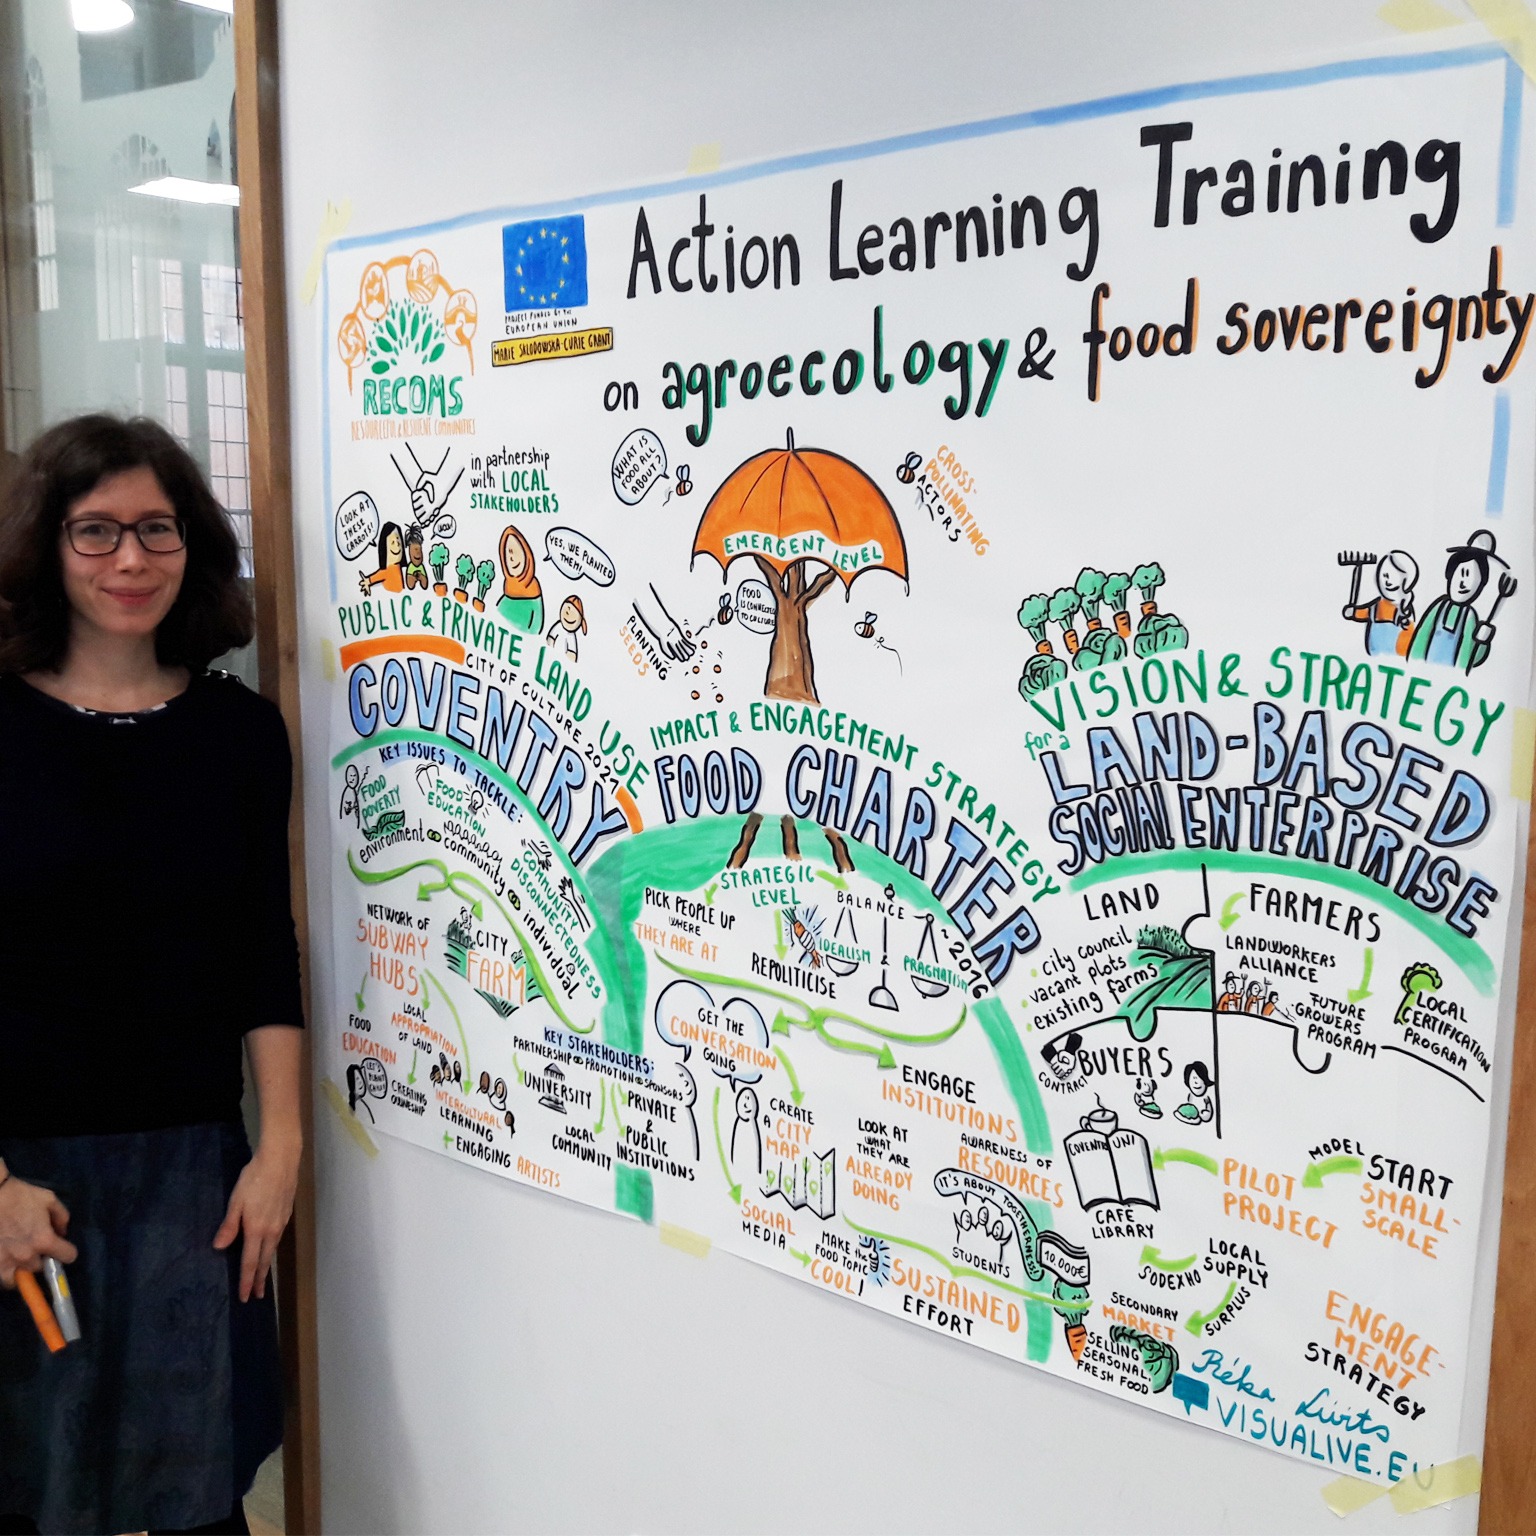 Action Learning Training
on agroecology & food sovereignty
RECOMS
RESOURCEFUL & RESILIENT COMMUNITIES
PROJECT FUNDED BY THE
EUROPEAN UNION
MARIE SKLODOWSKA-CURIE GRANT
in partnership
with LOCAL
STAKEHOLDERS
LOOK AT
THESE
CARROTS!
WOW!
YES, WE PLANTED
THEM!
PUBLIC & PRIVATE LAND USE
CITY OF CULTURE 2021
COVENTRY
KEY ISSUES TO TACKLE:
FOOD
POVERTY
FOOD
EDUCATION
"COMMUNITY
DISCONNECTEDNESS
environment community individual
NETWORK OF
SUBWAY
HUBS
CITY
FARM
FOOD
EDUCATION
LET'S
PLANT
LOCAL
APPROPRIATION
OF LAND
CREATING
OWNERSHIP
INTERCULTURAL
LEARNING
+ ENGAGING ARTISTS
KEY STAKEHOLDERS:
PARTNERSHIP PROMOTION SPONSORS
UNIVERSITY
LOCAL
COMMUNITY
PRIVATE
&
PUBLIC
INSTITUTIONS
WHAT IS
FOOD ALL
ABOUT?
CROSS-
POLLINATING
ACTORS
EMERGENT LEVEL
FOOD
IS CONNECTED
TO CULTURE
PLANTING
SEEDS
IMPACT & ENGAGEMENT STRATEGY
FOOD CHARTER
~2016
STRATEGIC
LEVEL
PICK PEOPLE UP
WHERE
THEY ARE AT
REPOLITICISE
BALANCE
IDEALISM
PRAGMATISM
GET THE
CONVERSATION
GOING
CREATE
A CITY
MAP
SOCIAL
MEDIA
MAKE the
FOOD TOPIC
COOL!
ENGAGE
INSTITUTIONS
LOOK AT
WHAT
THEY ARE
ALREADY
DOING
AWARENESS OF
RESOURCES
IT'S ABOUT TOGETHERNESS!
STUDENTS
10.000€
SUSTAINED
EFFORT
VISION & STRATEGY
for a
LAND-BASED
SOCIAL ENTERPRISE
LAND
city council
vacant plots
existing farms
FARMERS
LANDWORKERS
ALLIANCE
FUTURE
GROWERS
PROGRAM
LOCAL
CERTIFICATION
PROGRAM
CONTRACT
BUYERS
COVENTRY UNI
CAFÉ
LIBRARY
PILOT
PROJECT
MODEL
START
SMALL-
SCALE
SODEXHO
LOCAL
SUPPLY
SURPLUS
SECONDARY
MARKET
SELLING
SEASONAL,
FRESH FOOD
ENGAGE-
MENT
STRATEGY
Réka Livits
VISUALIVE.EU